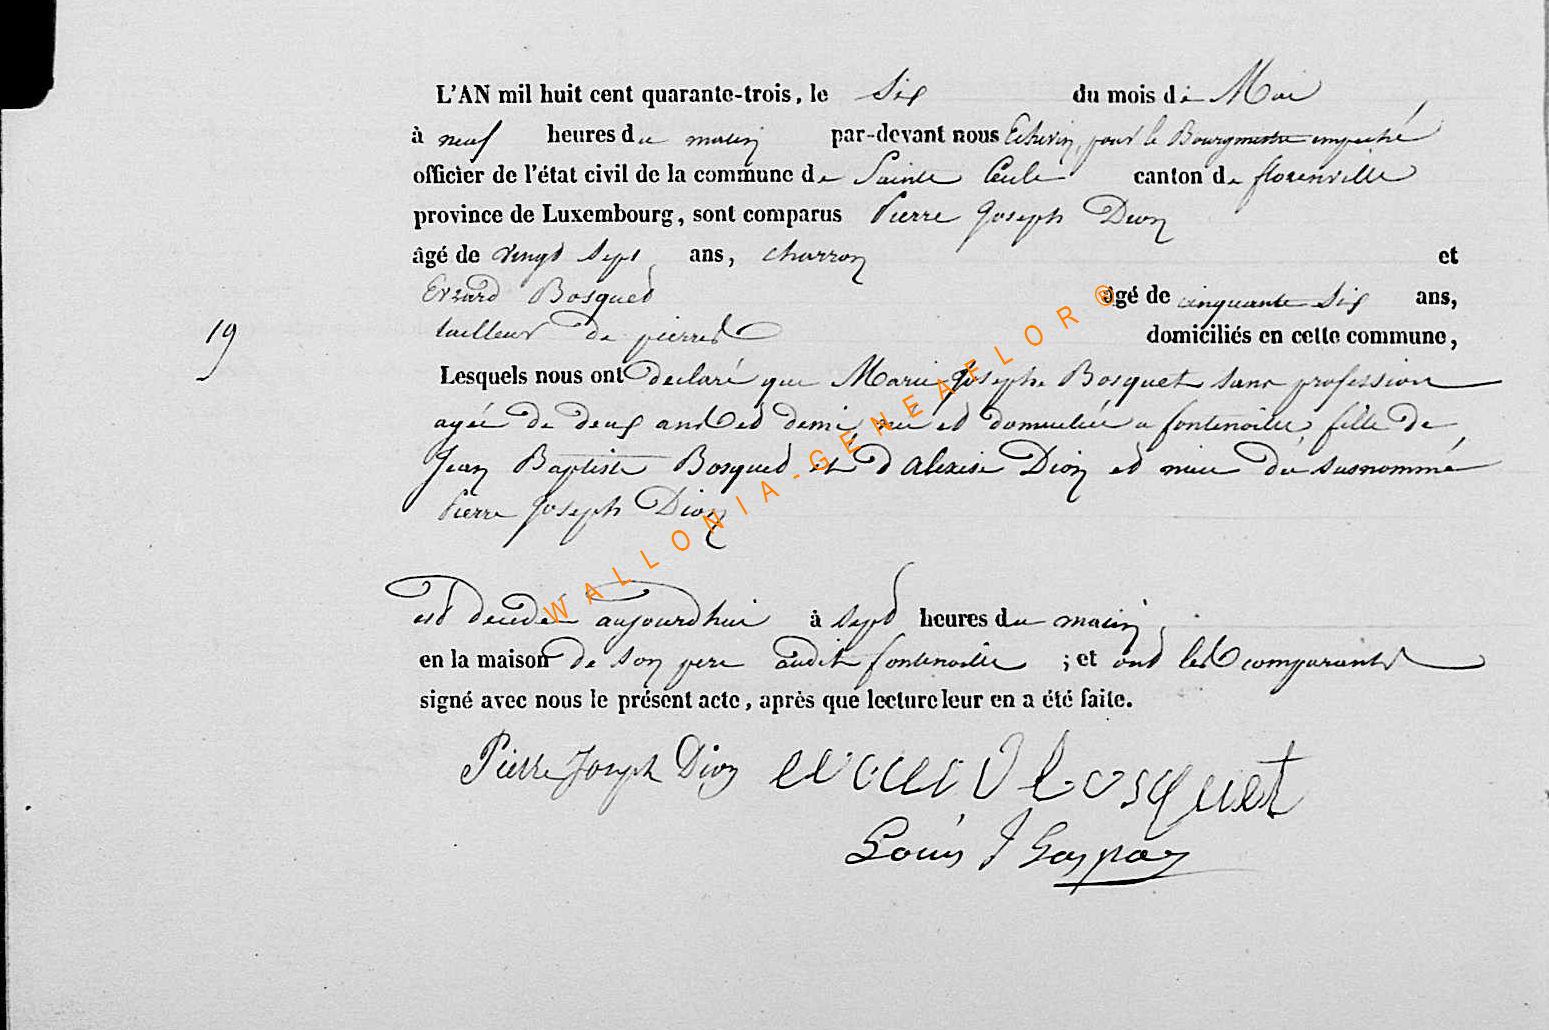 L'AN mil huit cent quarante-trois, le Six du mois de Mai,
à neuf heures du matin par-devant nous Echevin, pour le Bourgmestre empêché
officier de l'état civil de la commune de Sainte Cécile canton de florenville
province de Luxembourg, sont comparus Pierre Joseph Dion
âgé de vingt sept ans, charron et
Evrard Bosquet âgé de cinquante Six ans,
19
tailleur de pierres domiciliés en cette commune,
Lesquels nous ont déclaré que Marie Josephe Bosquet sans profession
agée de deux ans et demi, née et domiciliée a fontenoille, fille de
Jean Baptiste Bosquet et d'Alexise Dion et niece du susnommé
Pierre Joseph Dion
est décédée aujourd'hui à sept heures du matin,
en la maison de son pere audit fontenoille ; et ont les comparants
signé avec nous le présent acte, après que lecture leur en a été faite.
Pierre Joseph Dion evrard bosquet
Louis J Gaspar
WALLONIA-GÉNÉAFLOR©